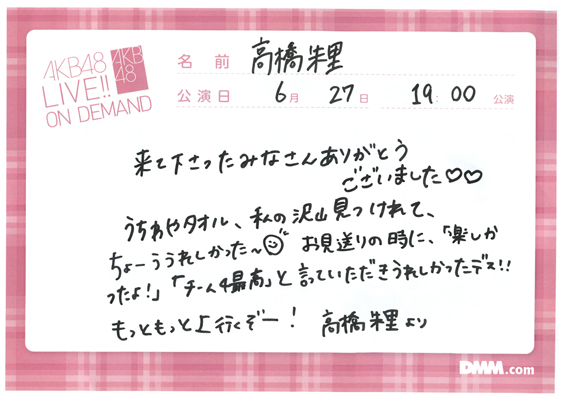 AKB48
LIVE!!
ON DEMAND
AKB
48
名前 高橋朱里
公演日 6月 27日 19:00 公演
来て下さったみなさんありがとう
ございました♡♡
うちわやタオル、私の沢山見つけれて、
ちょーううれしかった〜 お見送りの時に、「楽しか
ったよ!」「チーム4最高」と言っていただきうれしかったデス!!
もっともっと上行くぞー! 高橋朱里より
DMM.com